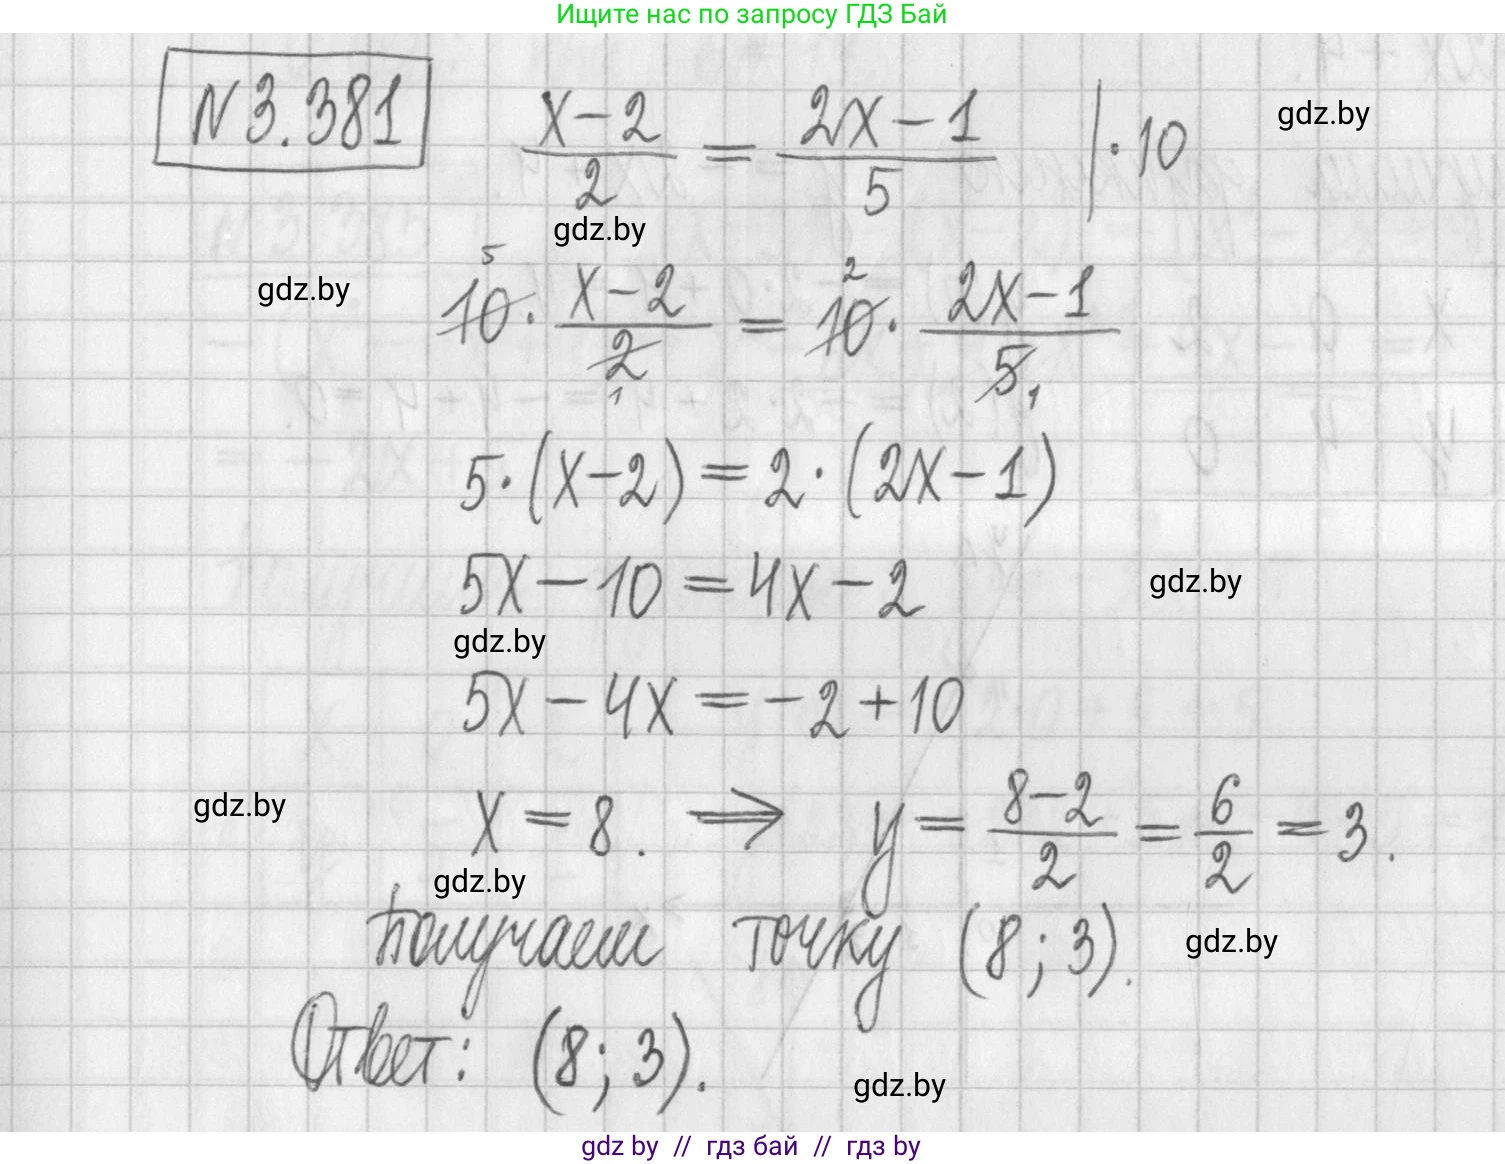 Ищите нас по запросу ГДЗ Бай
N 3.381
(x-2)/2 = (2x-1)/5 | · 10
gdz.by
gdz.by
gdz.by
10 · (x-2)/2 = 10 · (2x-1)/5
5 2
1 1
5·(x-2) = 2·(2x-1)
5x-10 = 4x-2
gdz.by
gdz.by
5x-4x = -2+10
gdz.by
x = 8. ⇒ y = (8-2)/2 = 6/2 = 3.
gdz.by
Получаем точку (8; 3).
gdz.by
Ответ: (8; 3).
gdz.by
gdz by // гдз бай // гдз by